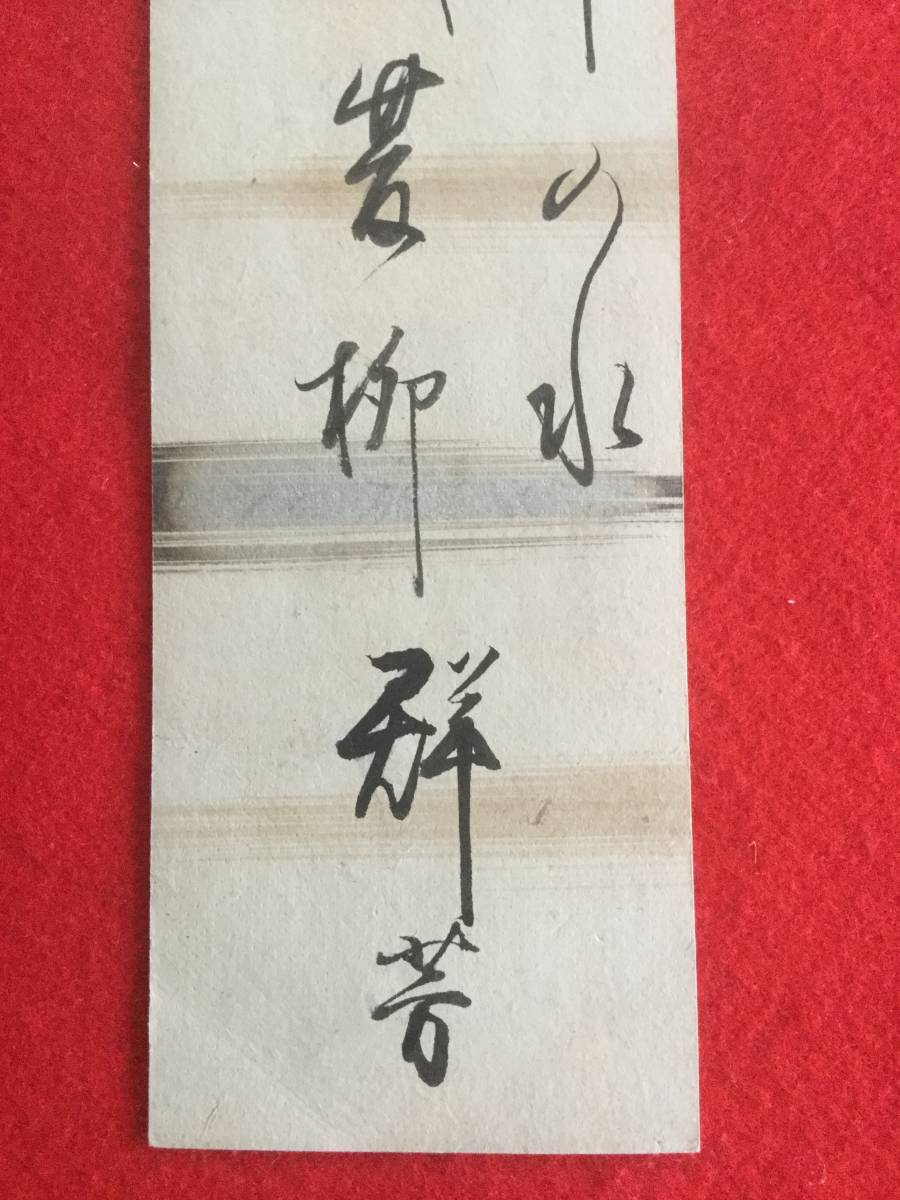 の水
柳群芳